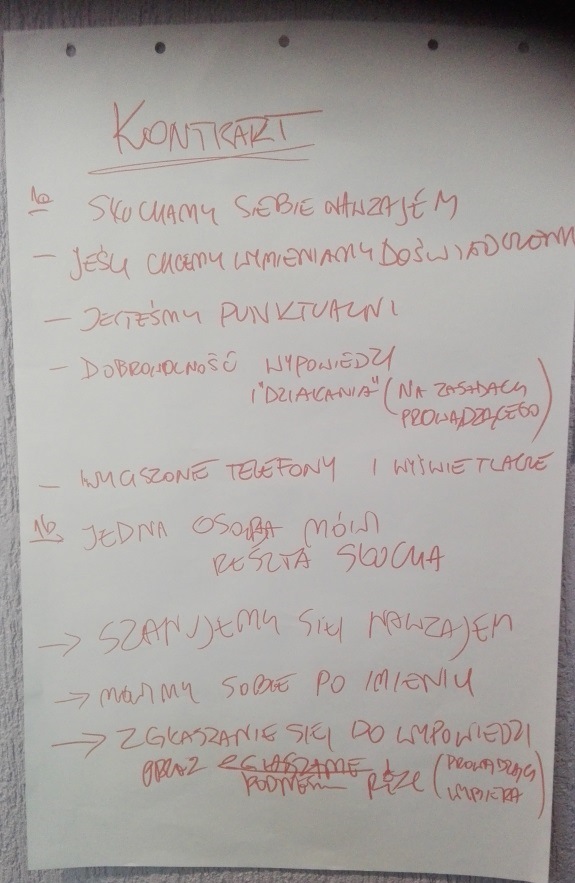 KONTRAKT
1a SŁUCHAMY SIEBIE NAWZAJEM
- JEŚLI CHCEMY WYMIENIAMY DOŚWIADCZENIA
- JESTEŚMY PUNKTUALNI
- DOBROWOLNOŚĆ WYPOWIEDZI
I "DZIAŁANIA" (NA ZASADACH
PROWADZĄCEGO)
- WYGASZONE TELEFONY I WYŚWIETLACZE
1b JEDNA OSOBA MÓWI
RESZTA SŁUCHA
→ SZANUJEMY SIĘ NAWZAJEM
→ MÓWIMY SOBIE PO IMIENIU
→ ZGŁASZANIE SIĘ DO WYPOWIEDZI
ZGŁASZAMY (PROWADZĄCY
PODNOSIMY RĘCE WYBIERA)